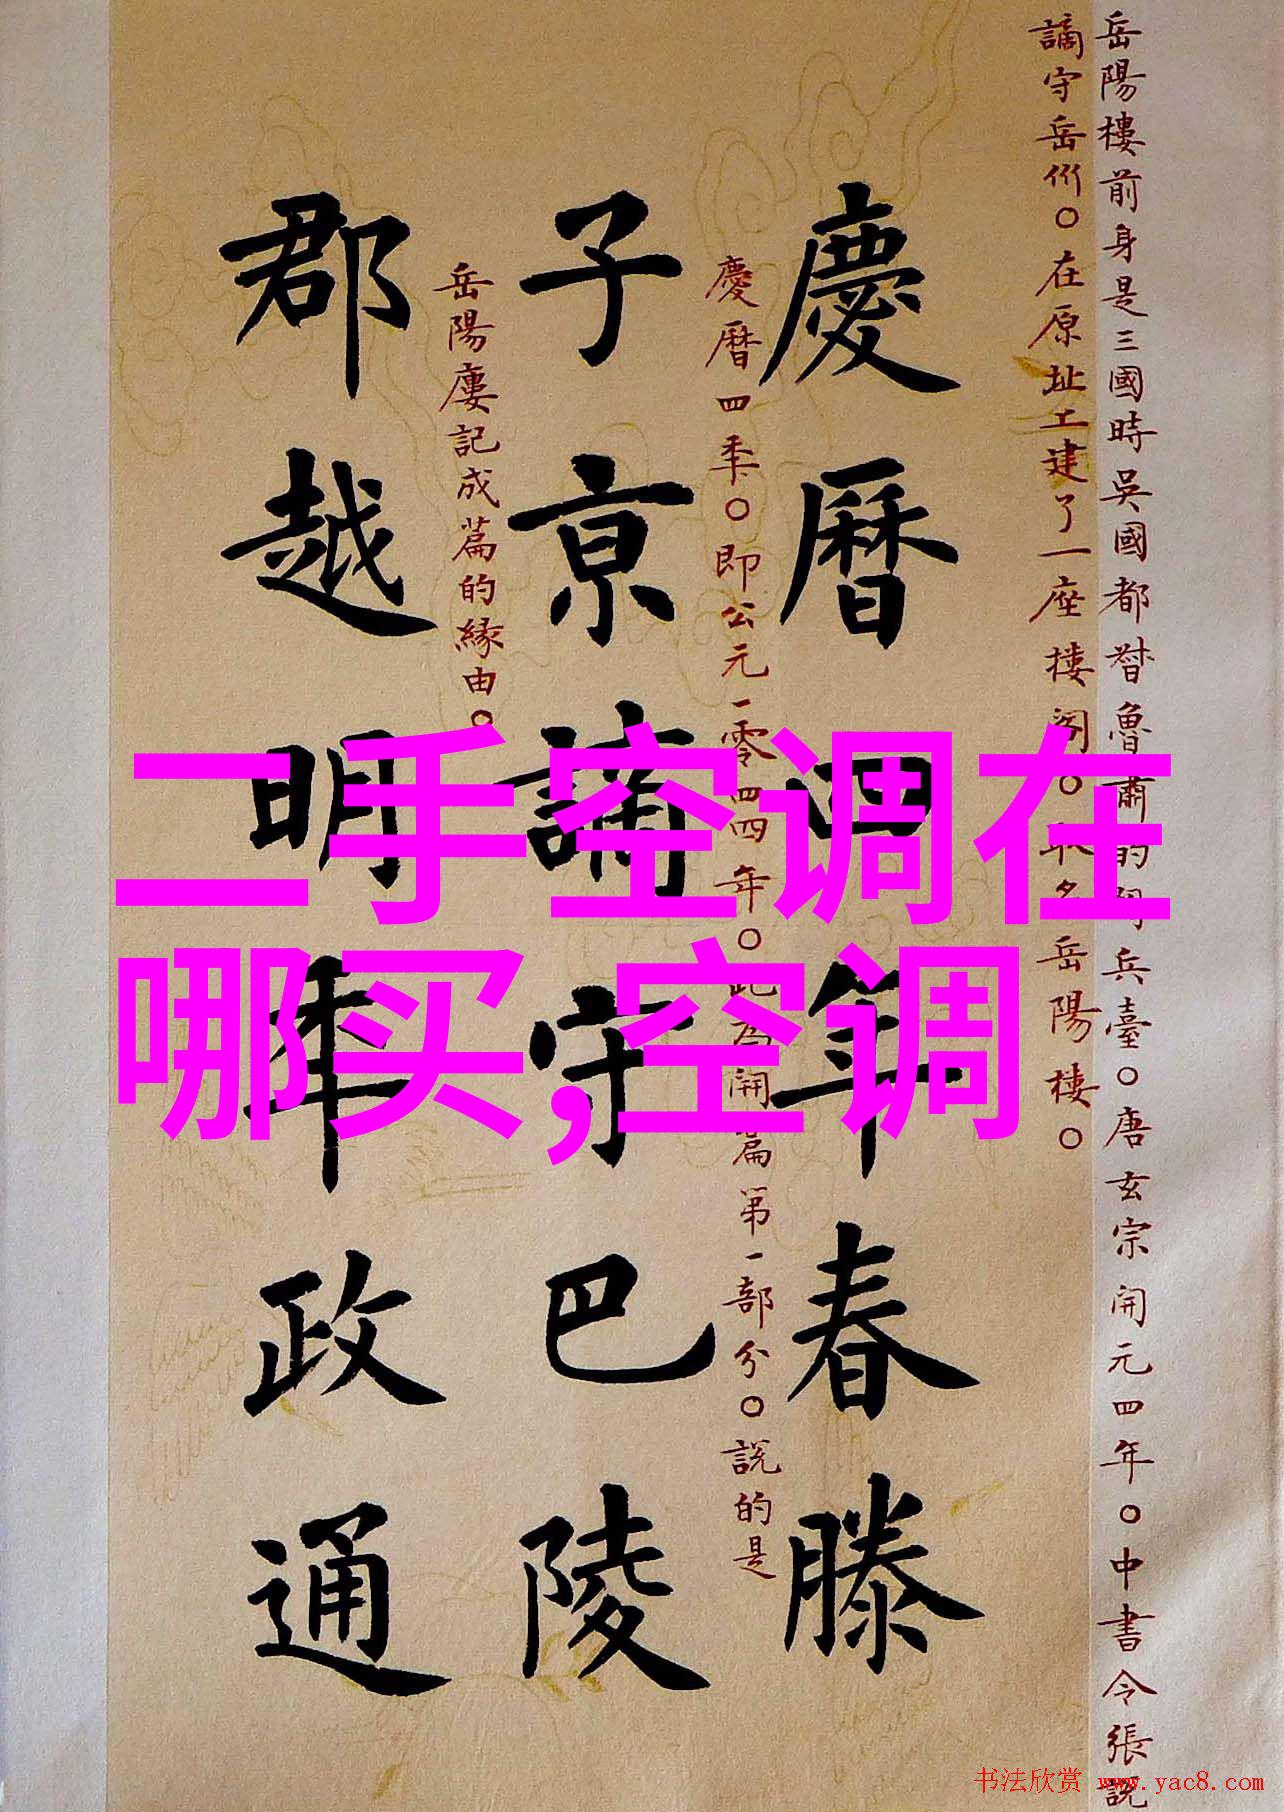 岳陽樓前身是三國時吳國都督魯肅的閱兵臺〇唐玄宗開元四年〇中書令張説
謫守岳州〇在原址工建了一座樓閣〇取名岳陽樓〇
慶曆四年春滕
慶曆四年〇即公元一零四四年〇此為開篇第一部分〇説的是
子京謫守巴陵
岳陽廔記成篇的緣由〇
郡越明年政通
二手空调在
哪买,空调
书法欣赏 www.yac8.com